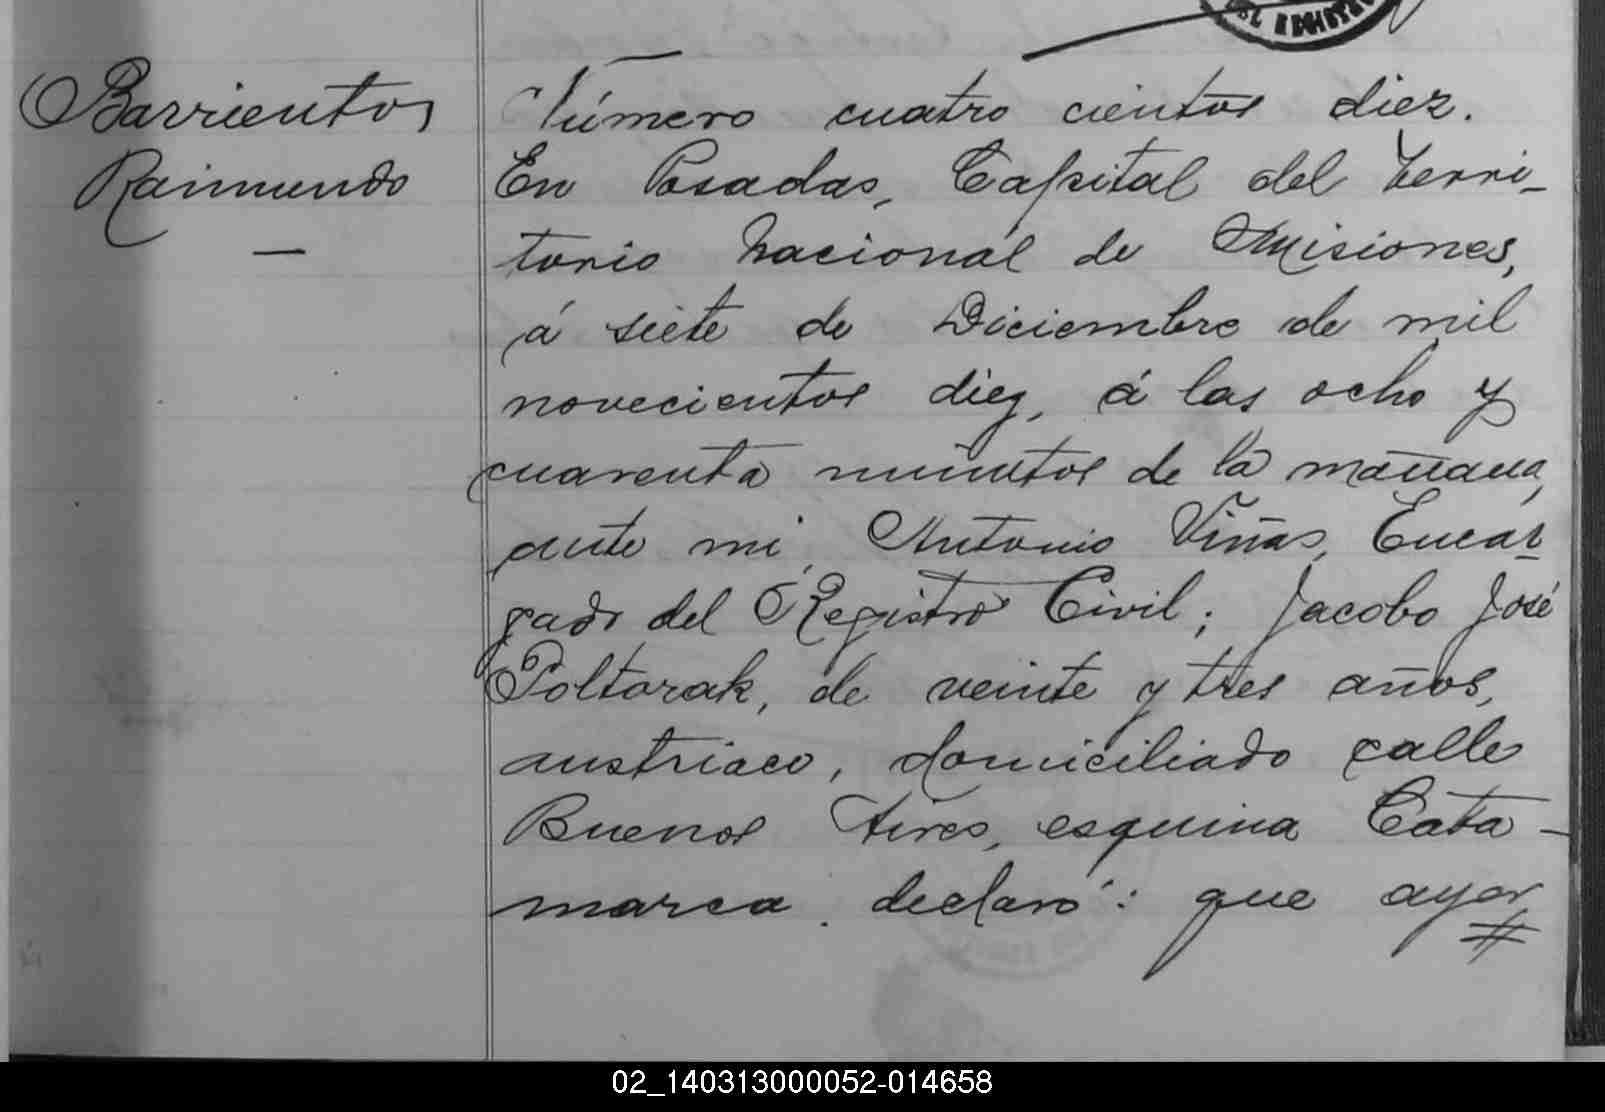 DEL REGISTRO
Barrientos
Raimundo
Número cuatro cientos diez.
En Posadas, Capital del Terri-
torio Nacional de Misiones,
á siete de Diciembre de mil
novecientos diez, á las ocho y
cuarenta minutos de la mañana,
ante mi, Antonio Viñas, Encar-
gado del Registro Civil; Jacobo José
Poltorak, de veinte y tres años,
austriaco, domiciliado calle
Buenos Aires, esquina Cata-
marca. declaró: que ayer
02_140313000052-014658